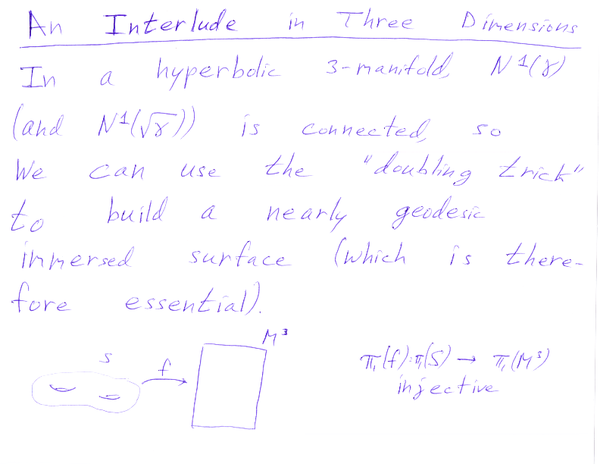 An Interlude in Three Dimensions
In a hyperbolic 3-manifold, N¹(γ)
(and N¹(√γ)) is connected, so
We can use the "doubling trick"
to build a nearly geodesic
immersed surface (which is there-
fore essential).
S f M³
π₁(f):π₁(S) → π₁(M³)
injective